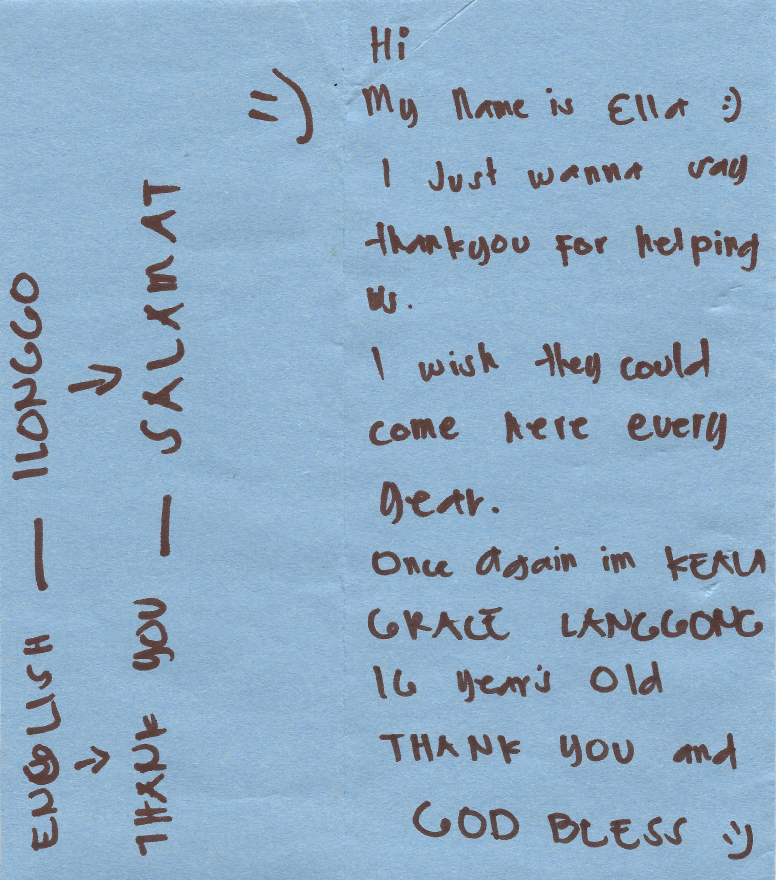 Hi
My Name is Ella :)
I Just wanna say
thankyou for helping
us.
I wish they could
come here every
year.
Once Again im KEALA
GRACE LANGGONG
16 year's Old
THANK YOU and
GOD BLESS :)
ENGLISH — ILONGGO
THANK YOU — SALAMAT